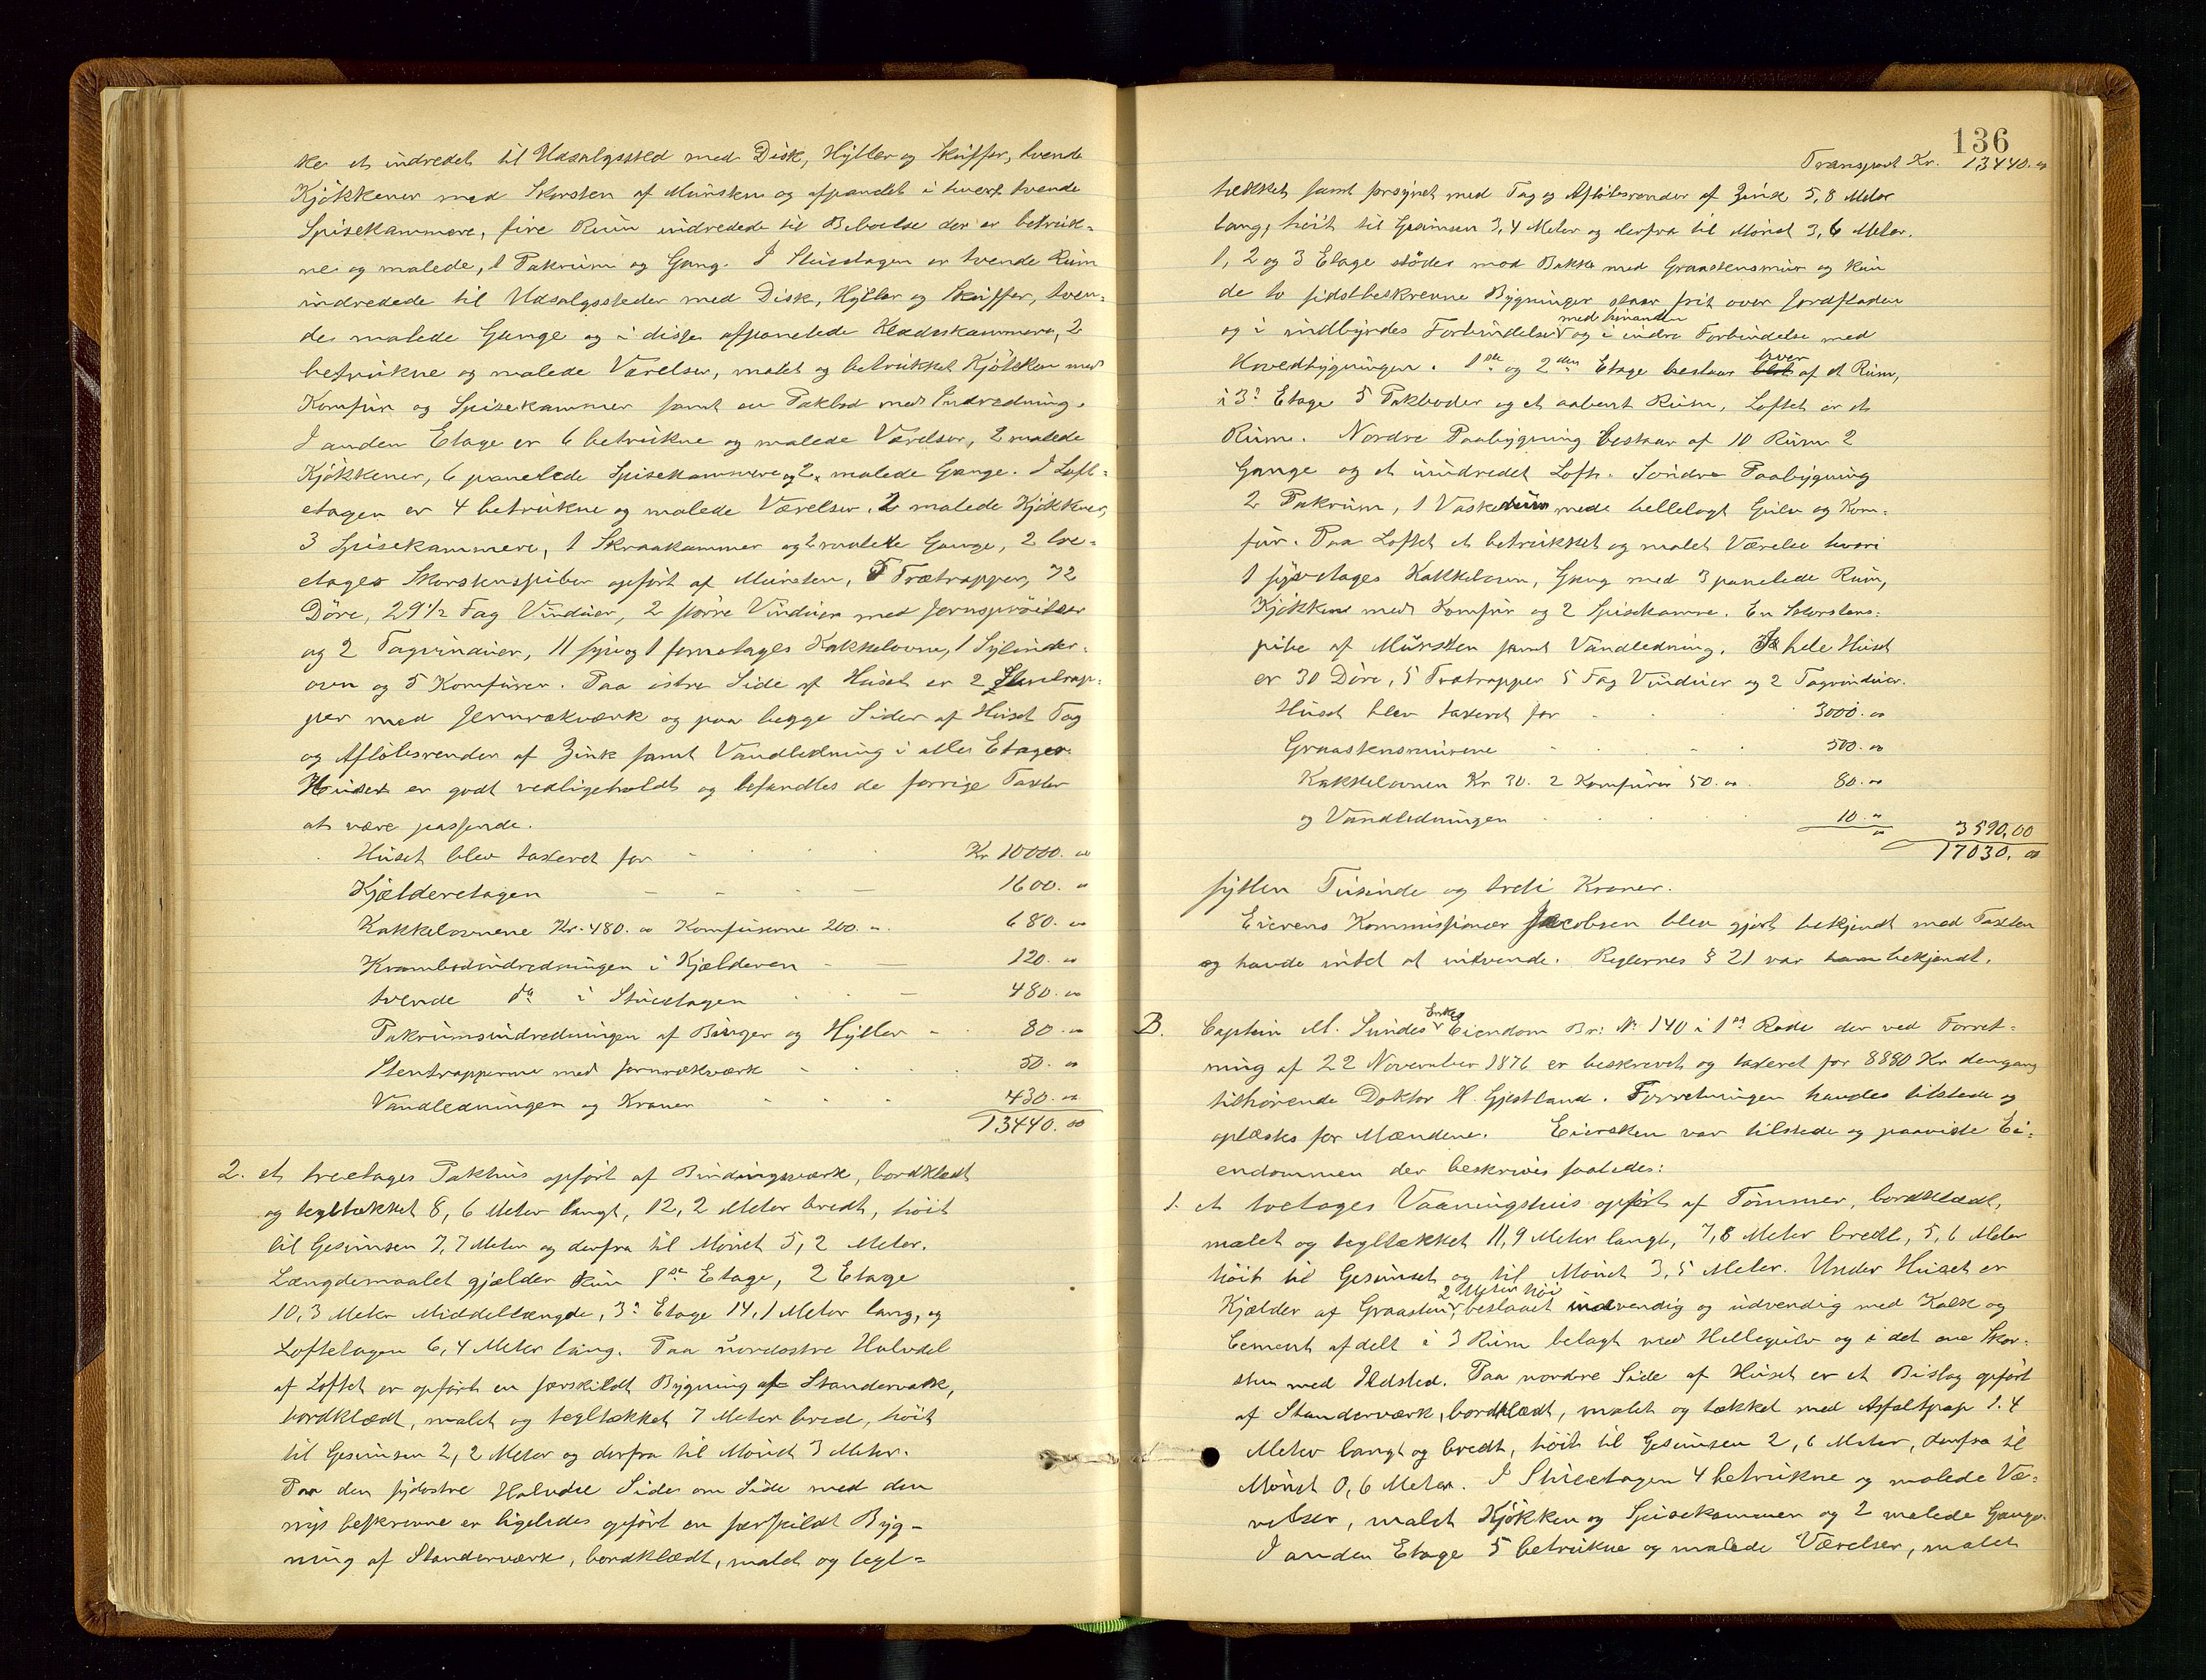 ker et indredet til Udsalgssted med Disk, Hylter og Skuffer, tvende
Kjøkkener med Skorsten af Mursten og afpanelt i hvert tvende
Spisekammere, fire Rum indredede til Beboelse der er betruk-
ne og malede, 1 Pakrum og Gang. I Stuetagen er tvende Rum
indredede til Udsalgssteder med Disk, Hylter og Skuffer, tven-
de malede Gange og i disse afpanelede Klædeskammere, 2
betrukne og malede Værelser, malet og betrukket Kjøkken med
Komfur og Spisekammer samt en Pakbod med Indredning.
I anden Etage er 6 betrukne og malede Værelser, 2 malede
Kjøkkener, 6 panelede Spisekammere og 2 malede Gange. I Loft-
etagen er 4 betrukne og malede Værelser, 2 malede Kjøkkener,
3 Spisekammere, 1 Skraakammer og 2 malede Gange, 2 tre-
etages Skorstenspiber opført af Mursten, 7 Trætrapper, 72
Døre, 29 1/2 Fag Vinduer, 2 større Vinduer med Jernsprøitser
og 2 Tagvinduer, 11 fyr og 1 femetages Kakkelovne, 1 Sylinder-
ovn og 5 Komfurer. Paa østre Side af Huset er 2 Stentrap-
per med Jernrækværk og paa begge Sider af Huset Tag
og Afløbsrender af Zink samt Vandledning i alle Etager.
Huset er godt vedligeholdt og befandtes de forrige Taxter
at være passende.
Huset blev taxeret for Kr 10000. 00
Kjælderetagen 1600. 00
Kakkelovnene Kr. 480. 00 Komfurerne 200. 00 680. 00
Krambodindredningen i Kjælderen 120. 00
tvende do i Stuetagen 480. 00
Pakrumsindredningen af Binger og Hylter 80. 00
Stentrapperne med Jernrækværk 50. 00
Vandledningen og Kraner 430. 00
13440. 00
2. et treetages Pakhus opført af Bindingsværk, bordklædt
og tegltækket 8,6 Meter langt, 12,2 Meter bredt, høit
til Gesimsen 7,7 Meter og derfra til Mønet 5,2 Meter.
Længdemaalet gjælder kun 1ste Etage, 2 Etage
10,3 Meter Middellængde, 3die Etage 14,1 Meter lang, og
Loftetagen 6,4 Meter lang. Paa nordøstre Halvdel
af Loftet er opført en særskildt Bygning af Standerværk,
bordklædt, malet og tegltækket 7 Meter bred, høit
til Gesimsen 2,2 Meter og derfra til Mønet 3 Meter.
Paa den sydøstre Halvdel Side om Side med den
nys beskrevne er ligeledes opført en særskildt Byg-
ning af Standerværk, bordklædt, malet og tegl-
136
Transport Kr. 13440. 00
tækket samt forsynet med Tag og Afløbsrender af Zink 5,8 Meter
lang, høit til Gesimsen 3,4 Meter og derfra til Mønet 3,6 Meter.
1, 2 og 3 Etage støder mod Bakke med Graastensmur og kun
de to sidstbeskrevne Bygninger staar frit over Jordfladen
med hinanden
og i indbyrdes Forbindelse og i indre Forbindelse med
hver
Hovedbygningen. 1ste og 2den Etage bestaar af et Rum,
i 3die Etage 5 Pakboder og et aabent Rum, Loftet er et
Rum. Nordre Paabygning bestaar af 10 Rum 2
Gange og et uindredet Loft. Søndre Paabygning
2 Pakrum, 1 Vaskerum med hellelagt Gulv og Kom-
fur. Paa Loftet et betrukket og malet Værelse hvori
1 fyretages Kakkelovn, Gang med 3 panelede Rum,
Kjøkken med Komfur og 2 Spisekamre. En Skorstens-
pibe af Mursten samt Vandledning. I hele Huset
er 30 Døre, 5 Trætrapper 5 Fag Vinduer og 2 Tagvinduer.
Huset blev taxeret for 3000. 00
Graastensmurene 500. 00
Kakkelovnen Kr 30. 2 Komfurer 50. 00 80. 00
og Vandledningen 10. 00 3590,00
17030. 00
sytten Tusinde og tredi Kroner.
Eierens Kommissionær Jacobsen blev gjort bekjendt med Taxten
og havde intet at indvende. Reglernes § 21 var ham bekjendt.
Enkes
B. Captein M. Sundes Eiendom Br: No 140 i 1ste Rode der ved Forret-
ning af 22 November 1876 er beskrevet og taxeret for 8890 Kr dengang
tilhørende Doktor H. Gjestland. Forretningen havdes tilstede og
oplæstes for Mændene. Eiersken var tilstede og paaviste Ei-
endommen der beskrives saaledes:
1. et toetages Vaaningshus opført af Tømmer, bordklædt,
malet og tegltækket 11,9 Meter langt, 7,8 Meter bredt, 5,6 Meter
høit til Gesimset og til Mønet 3,5 Meter. Under Huset er
2 Meter høi
Kjælder af Graasten beslaaet indvendig og udvendig med Kalk og
Cement afdelt i 3 Rum belagt med Hellegulv og i det ene Skor-
sten med Ildsted. Paa nordre Side af Huset er et Bislag opført
af Standerværk, bordklædt, malet og tækket med Asfaltpap 1.4
Meter langt og bredt, høit til Gesimsen 2,6 Meter, derfra til
Mønet 0,6 Meter. I Stuetagen 4 betrukne og malede Væ-
relser, malet Kjøkken og Spisekammer og 2 malede Gange.
I anden Etage 5 betrukne og malede Værelser, malet